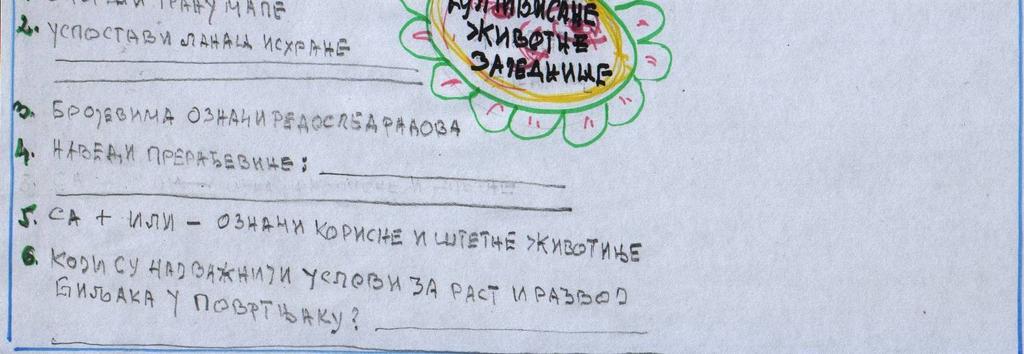 ГРАНУ МАПЕ
2. УСПОСТАВИ ЛАНАЦ ИСХРАНЕ
КУЛТИВИСАНЕ
ЖИВОТНЕ
ЗАЈЕДНИЦЕ
3. БРОЈЕВИМА ОЗНАЧИ РЕДОСЛЕД РАДОВА
4. НАВЕДИ ПРЕРАЂЕВИНЕ:
5. СА + ИЛИ – ОЗНАЧИ КОРИСНЕ И ШТЕТНЕ ЖИВОТИЊЕ
6. КОЈИ СУ НАЈВАЖНИЈИ УСЛОВИ ЗА РАСТ И РАЗВОЈ
БИЉАКА У ПОВРТЊАКУ?